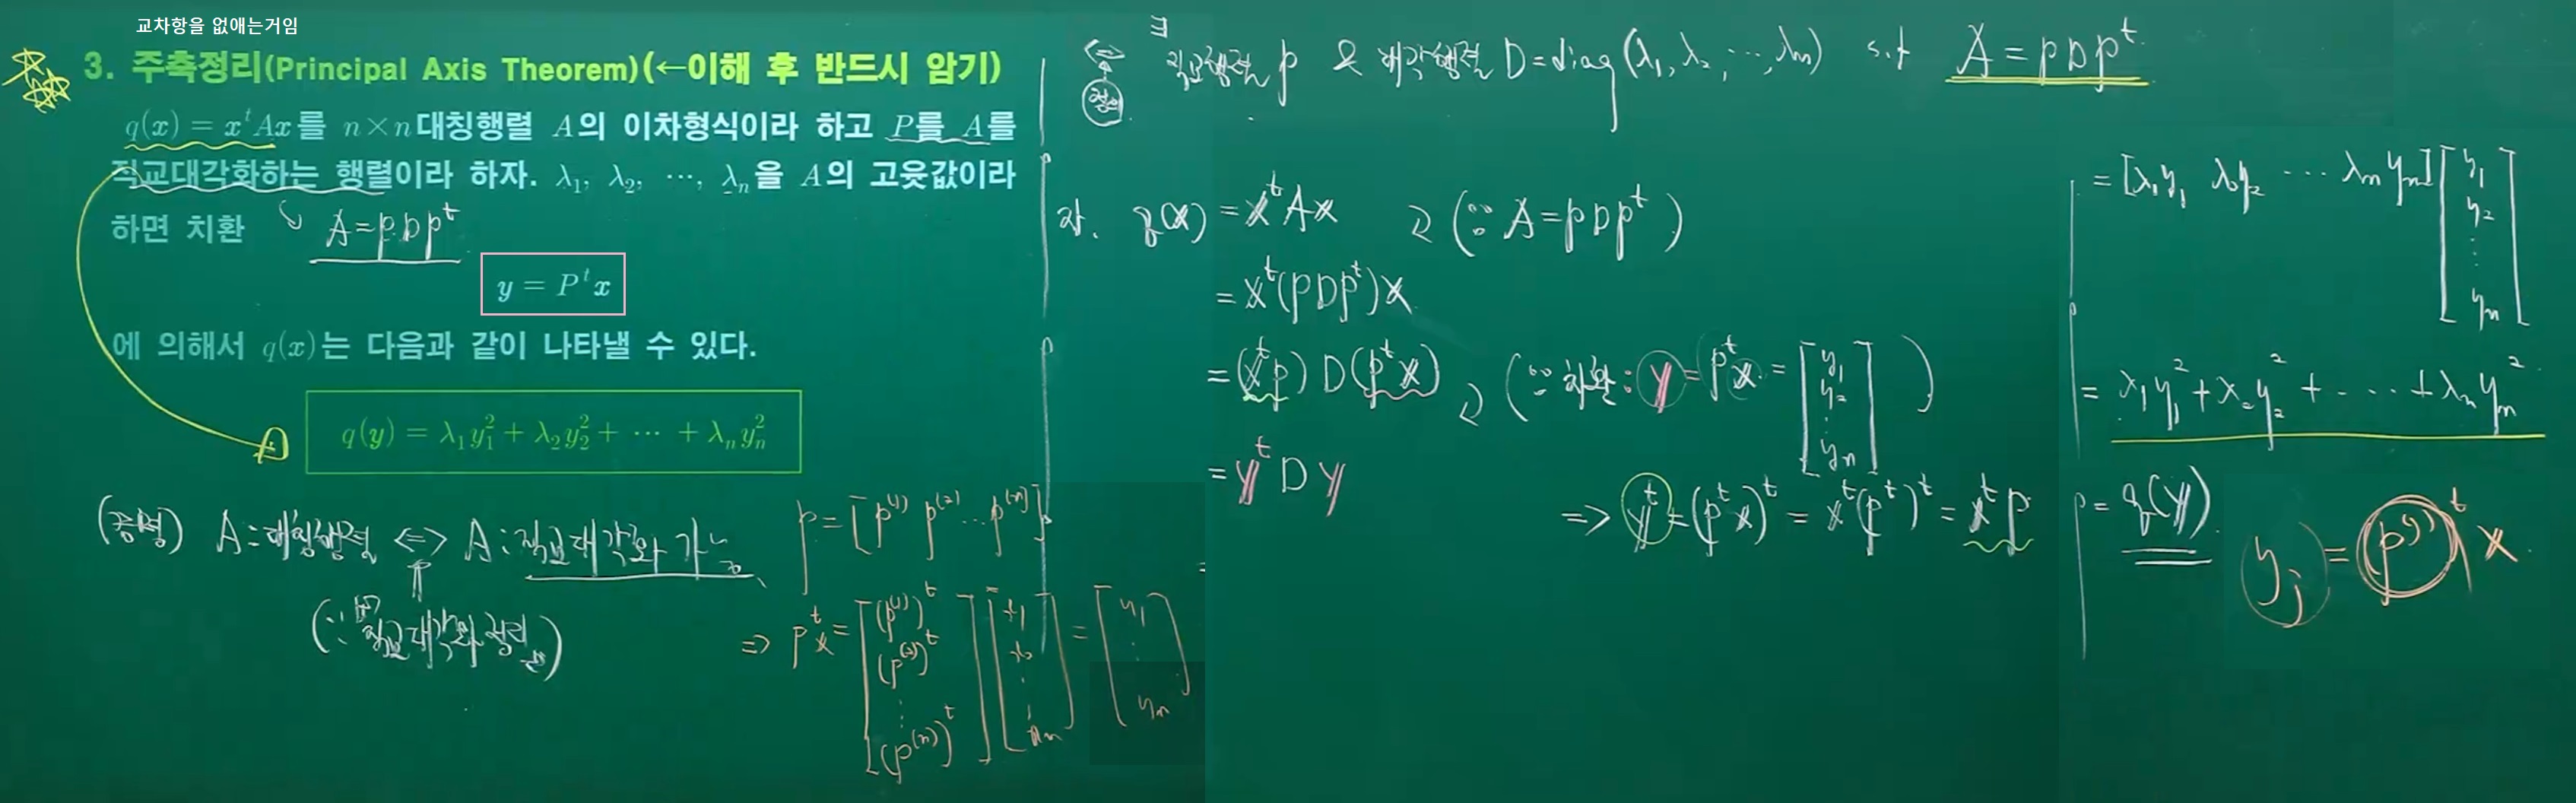 교차항을 없애는거임
3. 주축정리(Principal Axis Theorem)(←이해 후 반드시 암기)
q(x) = xᵗAx를 n×n대칭행렬 A의 이차형식이라 하고 P를 A를
직교대각화하는 행렬이라 하자. λ₁, λ₂, ⋯, λₙ을 A의 고윳값이라
하면 치환
A = PDPᵗ
y = Pᵗx
에 의해서 q(x)는 다음과 같이 나타낼 수 있다.
q(y) = λ₁y₁² + λ₂y₂² + ⋯ + λₙyₙ²
(증명) A : 대칭행렬 ⟺ A : 직교대각화 가능
(∵ 직교대각화 정리)
P = [p⁽¹⁾ p⁽²⁾ ⋯ p⁽ⁿ⁾]
⇒ Pᵗx = [(p⁽¹⁾)ᵗ (p⁽²⁾)ᵗ ⋮ (p⁽ⁿ⁾)ᵗ] [x₁ x₂ ⋮ xₙ] = [y₁ ⋮ yₙ]
⟺ ∃ 직교행렬 P & 대각행렬 D = diag(λ₁, λ₂, ⋯, λₙ) s.t A = PDPᵗ
정의
q(x) = xᵗAx (∵ A = PDPᵗ)
= xᵗ(PDPᵗ)x
= (xᵗP) D (Pᵗx) (∵ 치환 : y = Pᵗx = [y₁ y₂ ⋮ yₙ])
= yᵗDy
⇒ yᵗ = (Pᵗx)ᵗ = xᵗ(Pᵗ)ᵗ = xᵗP
=
= [λ₁y₁ λ₂y₂ ⋯ λₙyₙ] [y₁ y₂ ⋮ yₙ]
= λ₁y₁² + λ₂y₂² + ⋯ + λₙyₙ²
= q(y)
yⱼ = (p⁽ʲ⁾)ᵗ x